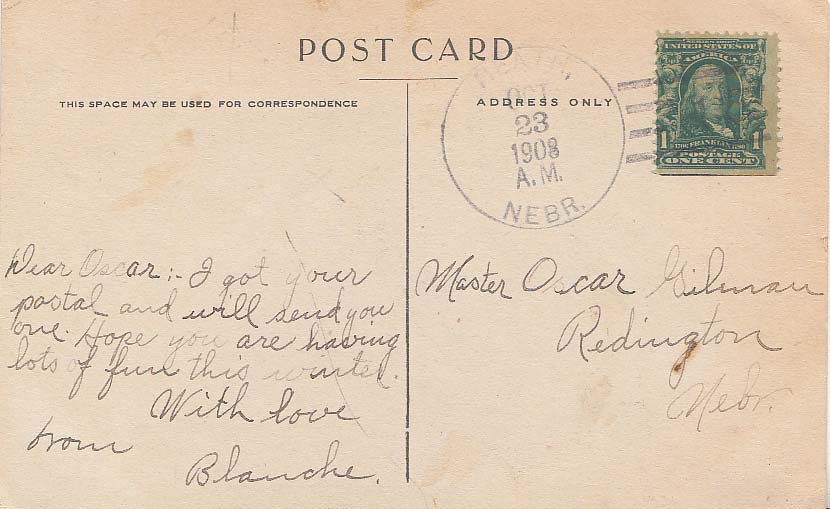 POST CARD
THIS SPACE MAY BE USED FOR CORRESPONDENCE
ADDRESS ONLY
HEATH,
OCT
23
1908
A.M.
NEBR.
SERIES 1902
UNITED STATES OF
AMERICA
1 1706 FRANKLIN 1790 1
POSTAGE
ONE CENT
Dear Oscar:- I got your
postal and will send you
one. Hope you are having
lots of fun this winter.
With love
from
Blanche.
Master Oscar Gilman
Redington
Nebr.